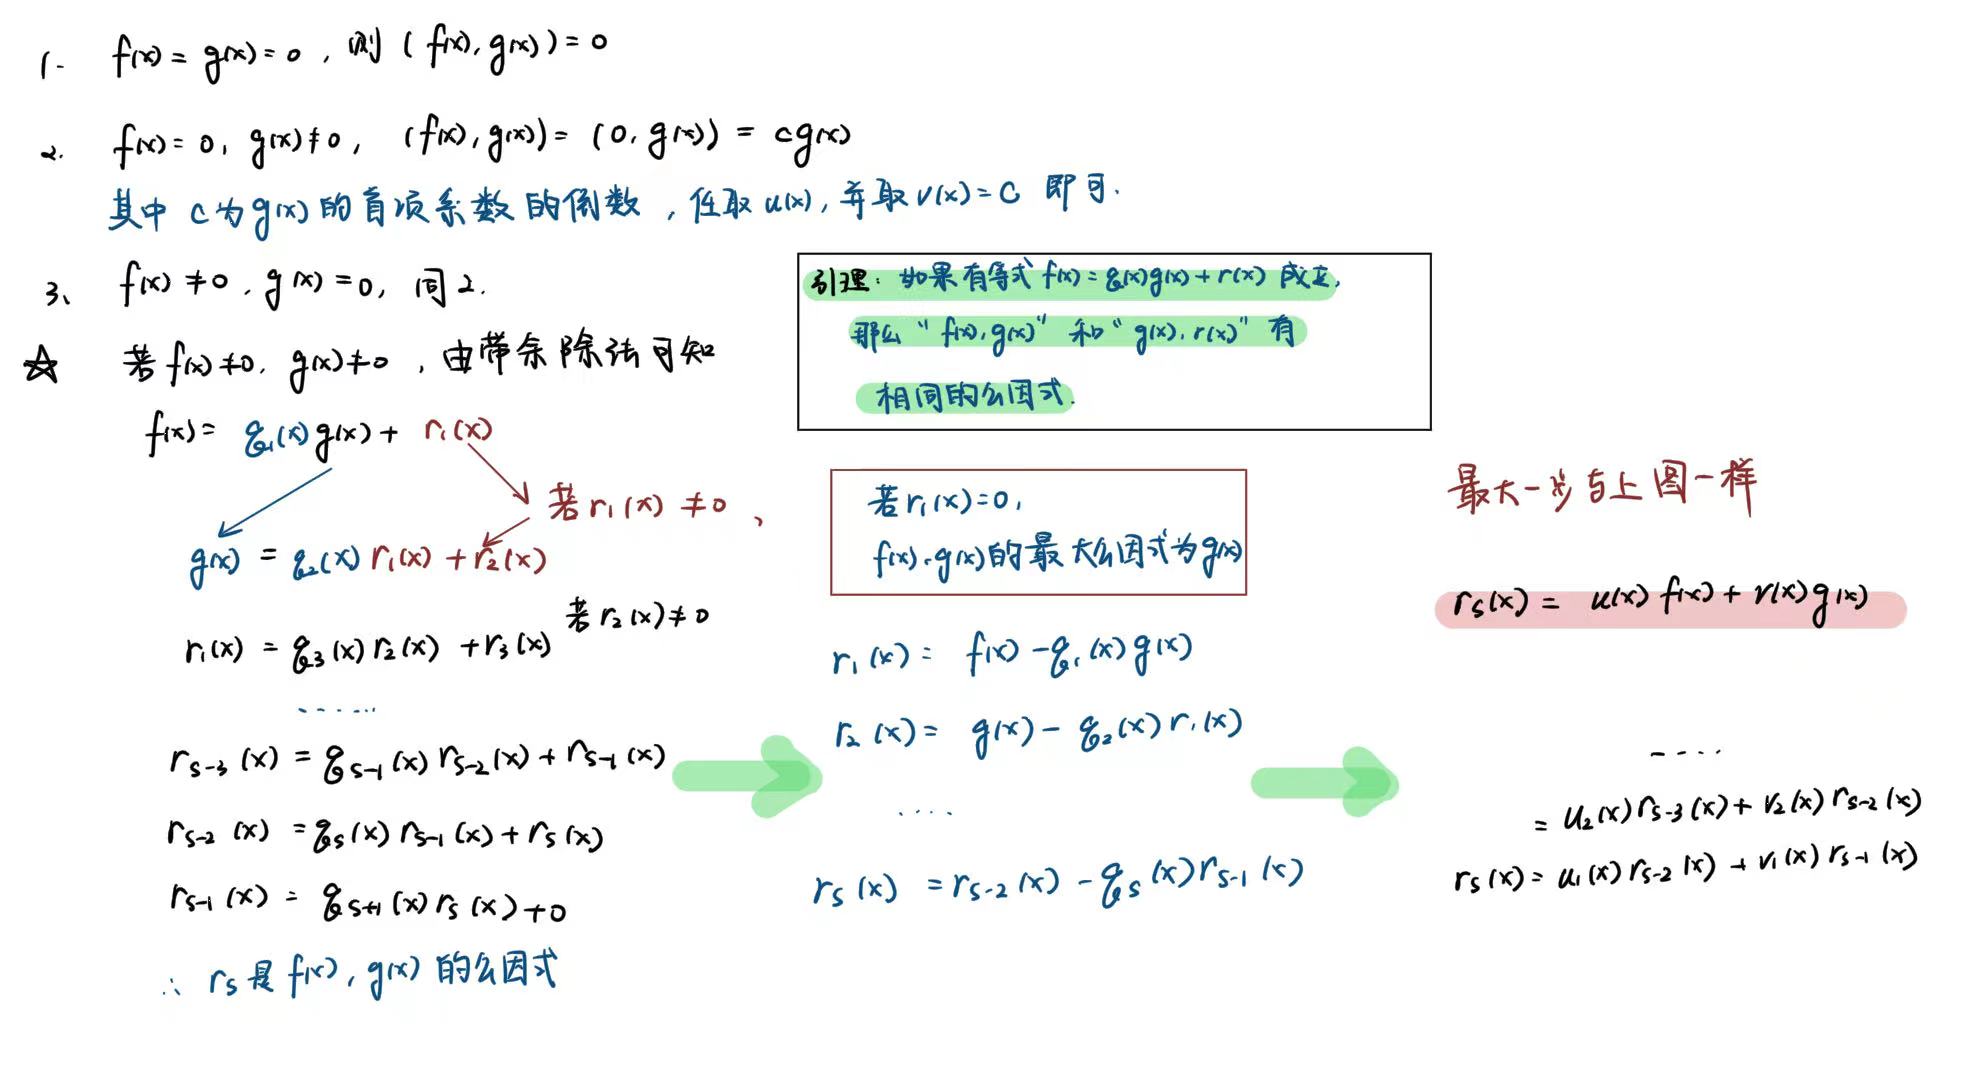 1. f(x) = g(x) = 0, 则 (f(x), g(x)) = 0
2. f(x) = 0, g(x) ≠ 0, (f(x), g(x)) = (0, g(x)) = cg(x)
其中 c 为 g(x) 的首项系数的倒数, 任取 u(x), 并取 v(x) = C 即可.
3、 f(x) ≠ 0, g(x) = 0, 同 2.
☆ 若 f(x) ≠ 0, g(x) ≠ 0, 由带余除法可知
f(x) = q₁(x)g(x) + r₁(x)
若 r₁(x) ≠ 0,
g(x) = q₂(x) r₁(x) + r₂(x)
若 r₂(x) ≠ 0
r₁(x) = q₃(x) r₂(x) + r₃(x)
......
rₛ₋₃(x) = qₛ₋₁(x) rₛ₋₂(x) + rₛ₋₁(x)
rₛ₋₂(x) = qₛ(x) rₛ₋₁(x) + rₛ(x)
rₛ₋₁(x) = qₛ₊₁(x) rₛ(x) + 0
∴ rₛ 是 f(x), g(x) 的公因式
引理: 如果有等式 f(x) = q(x)g(x) + r(x) 成立,
那么 “f(x), g(x)” 和 “g(x), r(x)” 有
相同的公因式.
若 r₁(x) = 0,
f(x), g(x) 的最大公因式为 g(x)
r₁(x) = f(x) - q₁(x) g(x)
r₂(x) = g(x) - q₂(x) r₁(x)
....
rₛ(x) = rₛ₋₂(x) - qₛ(x) rₛ₋₁(x)
最大一步与上图一样
rₛ(x) = u(x) f(x) + v(x) g(x)
....
= u₂(x) rₛ₋₃(x) + v₂(x) rₛ₋₂(x)
rₛ(x) = u₁(x) rₛ₋₂(x) + v₁(x) rₛ₋₁(x)